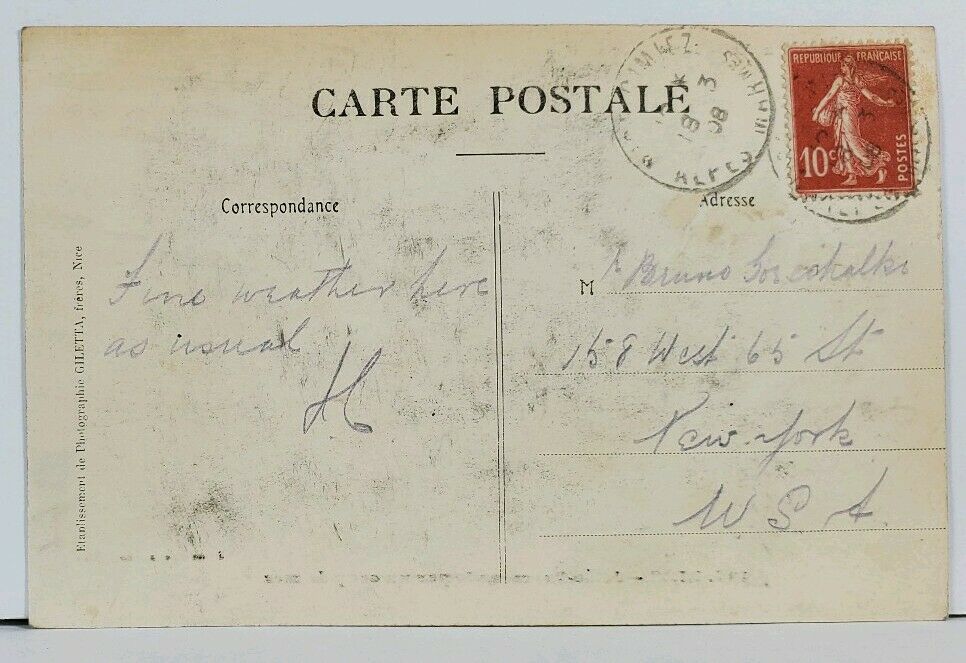 CARTE POSTALE
REPUBLIQUE FRANÇAISE
10c
POSTES
18 3
08
ALPES MARITMES
Correspondance
Adresse
Fine weather here
as usual
H
M Bruno
158 West 65 St
New-York
U S A
Etablissement de Photographie GILETTA, frères, Nice